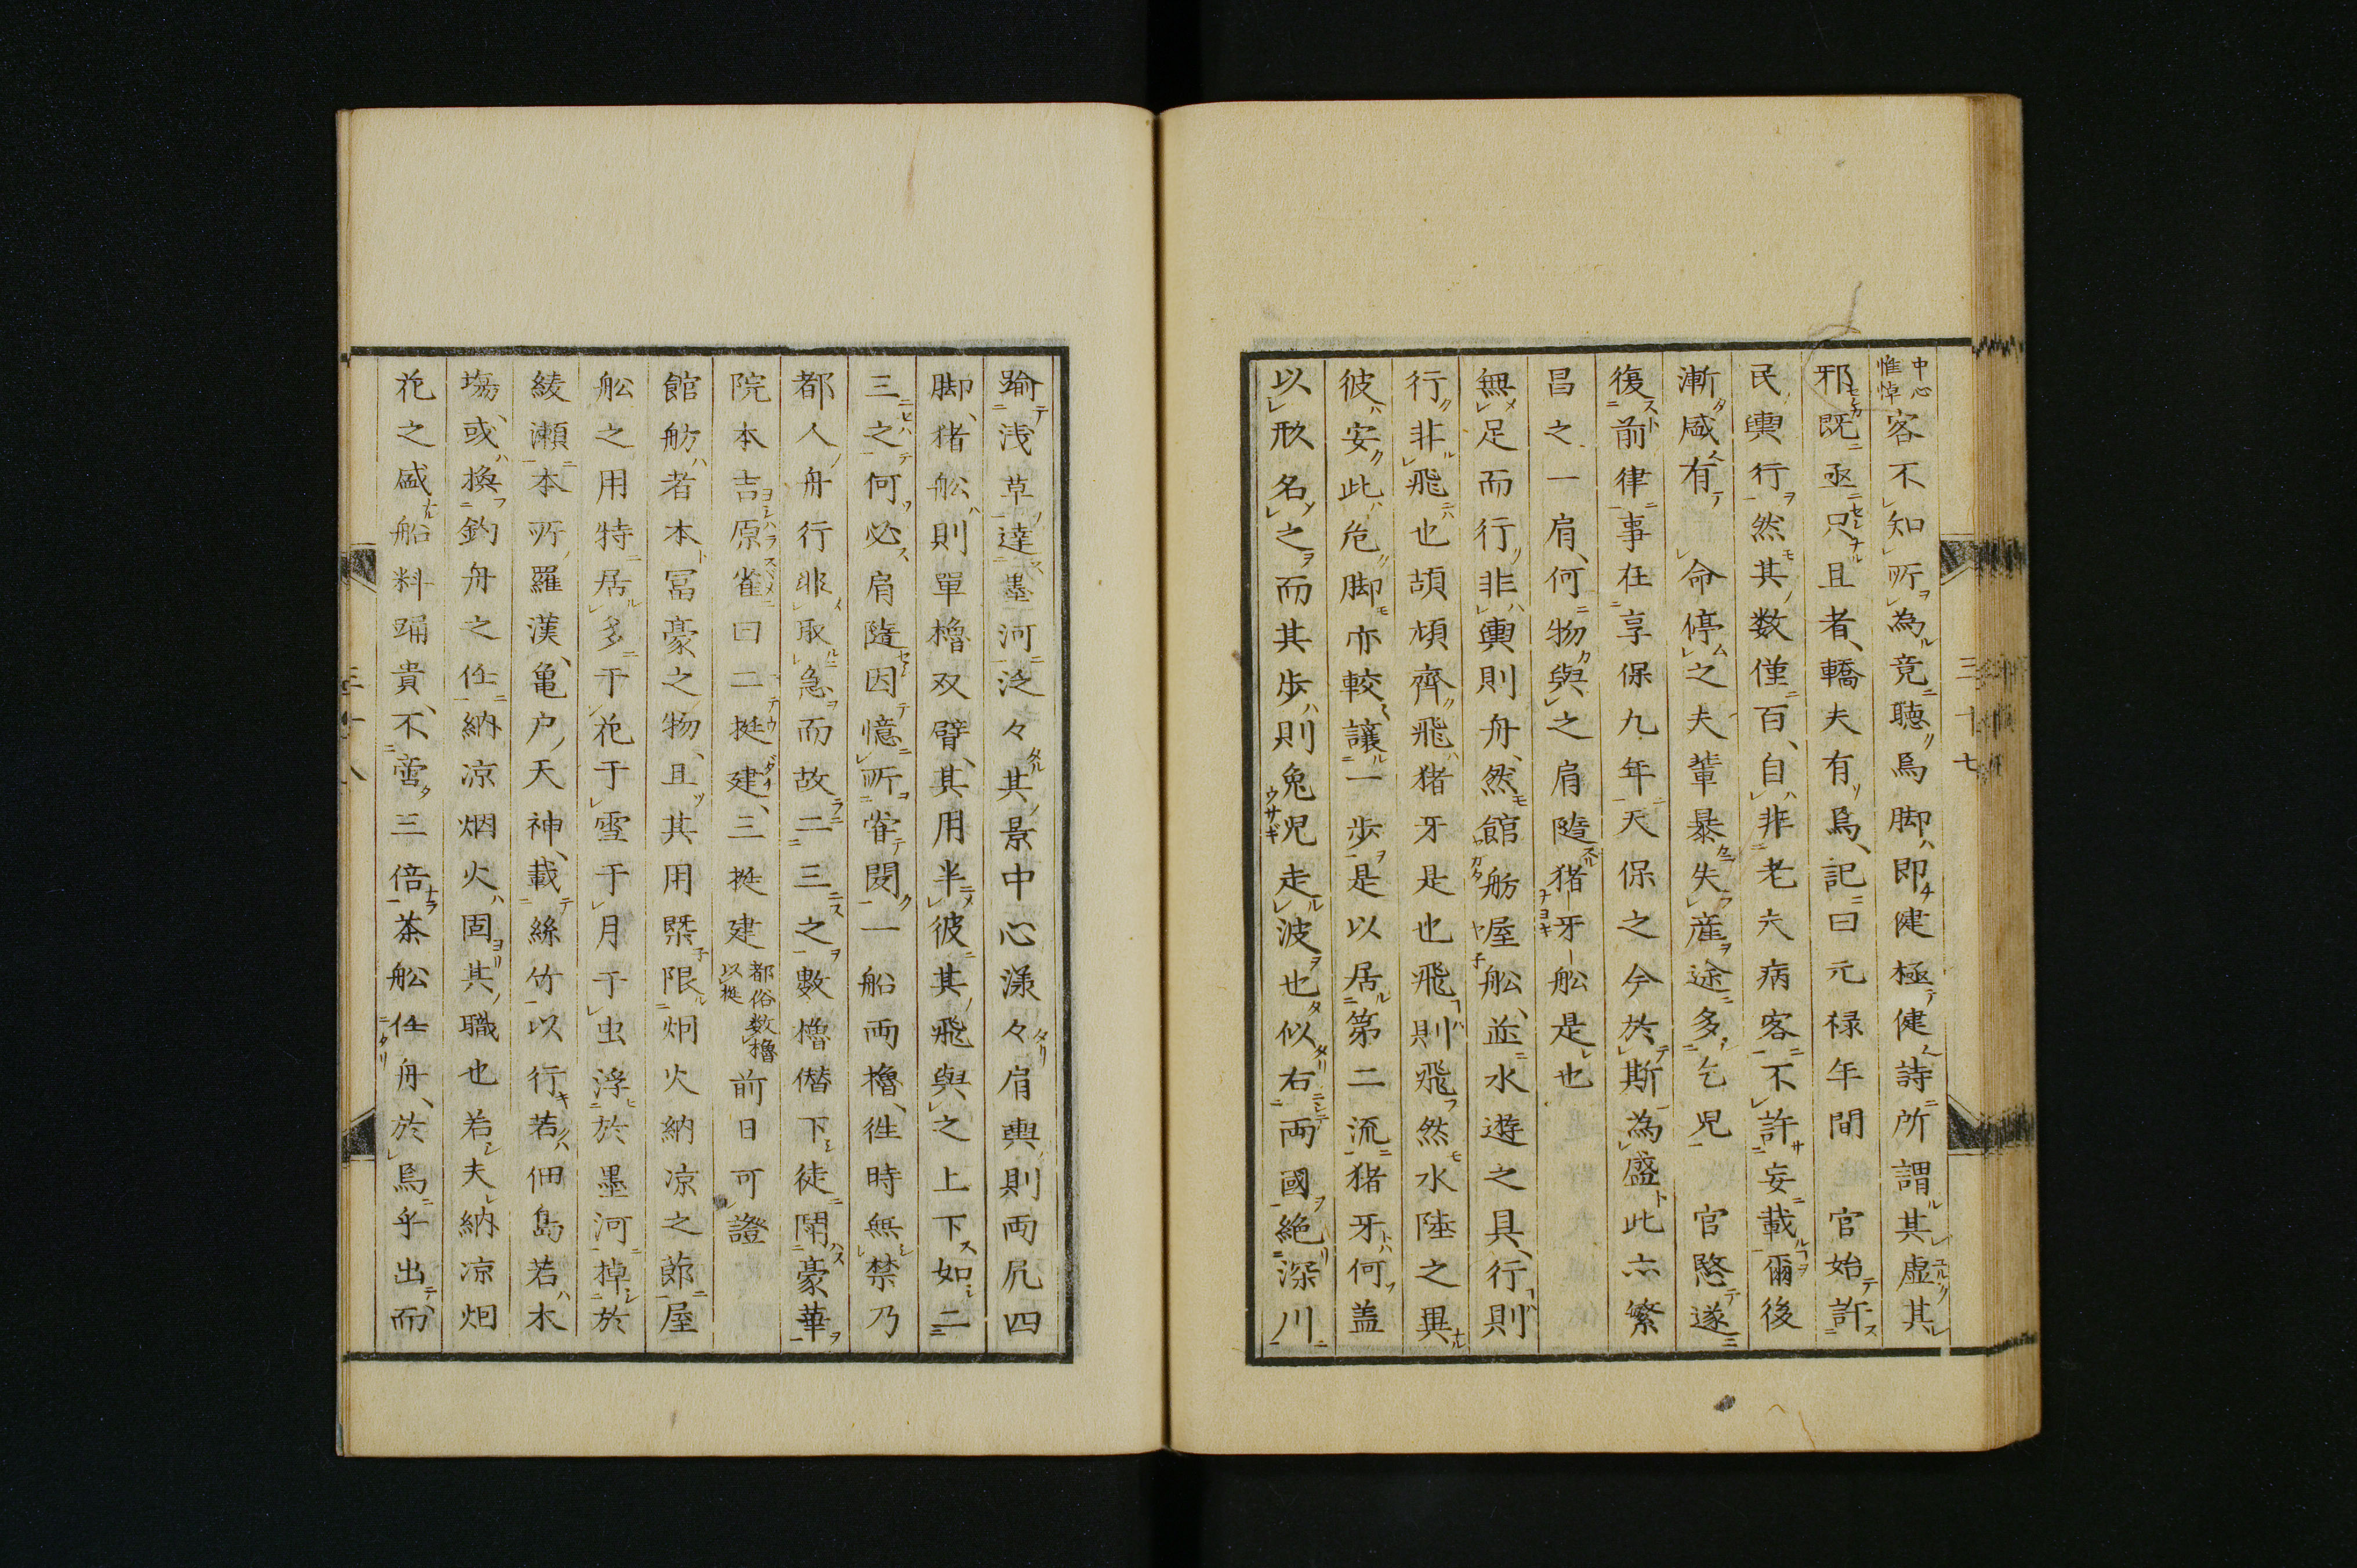 中心
惟悼
客不知所為竟聴為脚即健極健詩所謂其虚其
邪既亟只且者轎夫有焉記曰元禄年間 官始許
民輿行然其数僅百自非老夫病客不許妄載爾後
漸盛有 命停之夫輩暴失産途多乞児 官愍遂
復前律事在享保九年天保之今於斯為盛此亦繁
昌之一肩何物與之肩随猪牙舩是也
無足而行非輿則舟然館舫屋舩並水遊之具行則
行非飛也頡頏齊飛猪牙是也飛則飛然水陸之異
彼安此危脚亦較讓一歩是以居第二流猪牙何盖
以形名之而其歩則兔児走波也似右両國絶深川
三十七
踰浅草達墨河泛々其景中心漾々肩輿則両尻四
脚猪舩則單櫓双臂其用半彼其飛與之上下如二
三之何必肩随因憶所嘗閲一船両櫓徃時無禁乃
都人舟行非取急而故二三之數櫓僭下徒鬧豪華
院本吉原雀曰二挺建三挺建
都俗数櫓
以挺
前日可證
館舫者本冨豪之物且其用槩限烟火納凉之節屋
舩之用特居多于花于雪于月于虫浮於墨河棹於
綾瀬本所羅漢亀户天神載絲竹以行若佃島若木
塲或換釣舟之任納凉烟火固其職也若夫納凉烟
花之盛船料踊貴不啻三倍茶舩任舟於焉乎出而
三十八